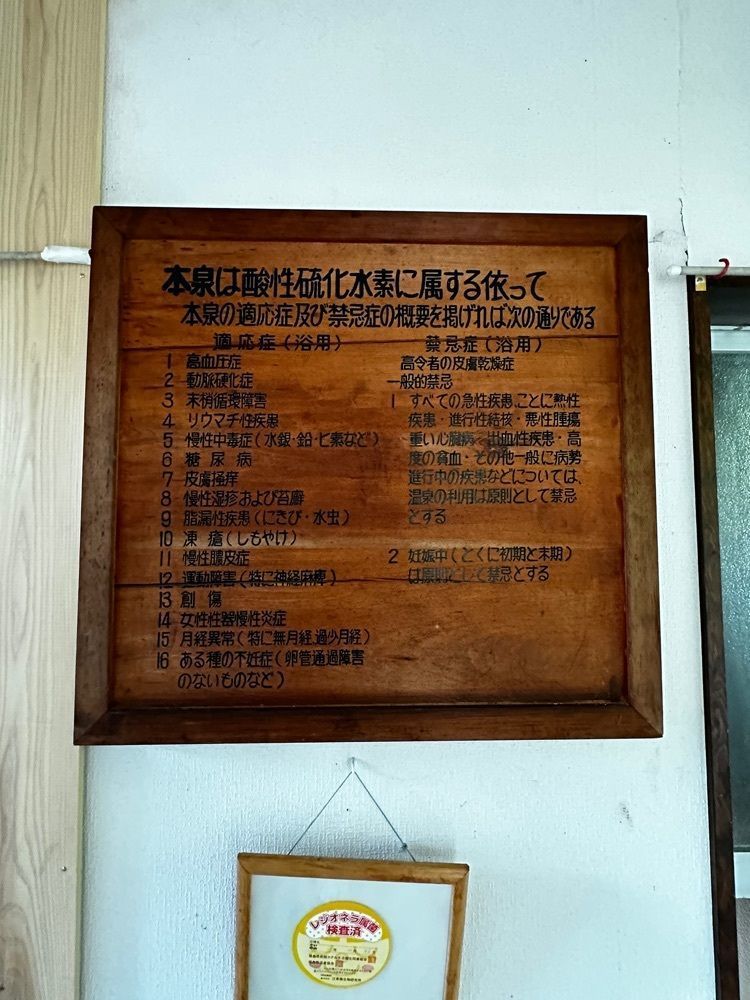 本泉は酸性硫化水素に属する依って
本泉の適応症及び禁忌症の概要を掲げれば次の通りである
適応症(浴用)
1 高血圧症
2 動脈硬化症
3 末梢循環障害
4 リウマチ性疾患
5 慢性中毒症(水銀・鉛・ヒ素など)
6 糖尿病
7 皮膚掻痒
8 慢性湿疹および苔癬
9 脂漏性疾患(にきび・水虫)
10 凍瘡(しもやけ)
11 慢性膿皮症
12 運動障害(特に神経麻痺)
13 創傷
14 女性性器慢性炎症
15 月経異常(特に無月経、過少月経)
16 ある種の不妊症(卵管通過障害
のないものなど)
禁忌症(浴用)
高令者の皮膚乾燥症
一般的禁忌
1 すべての急性疾患、ことに熱性
疾患・進行性結核・悪性腫瘍
重い心臓病・出血性疾患・高
度の貧血・その他一般に病勢
進行中の疾患などについては、
温泉の利用は原則として禁忌
とする
2 妊娠中(とくに初期と末期)
は原則として禁忌とする
レジオネラ属菌
検査済